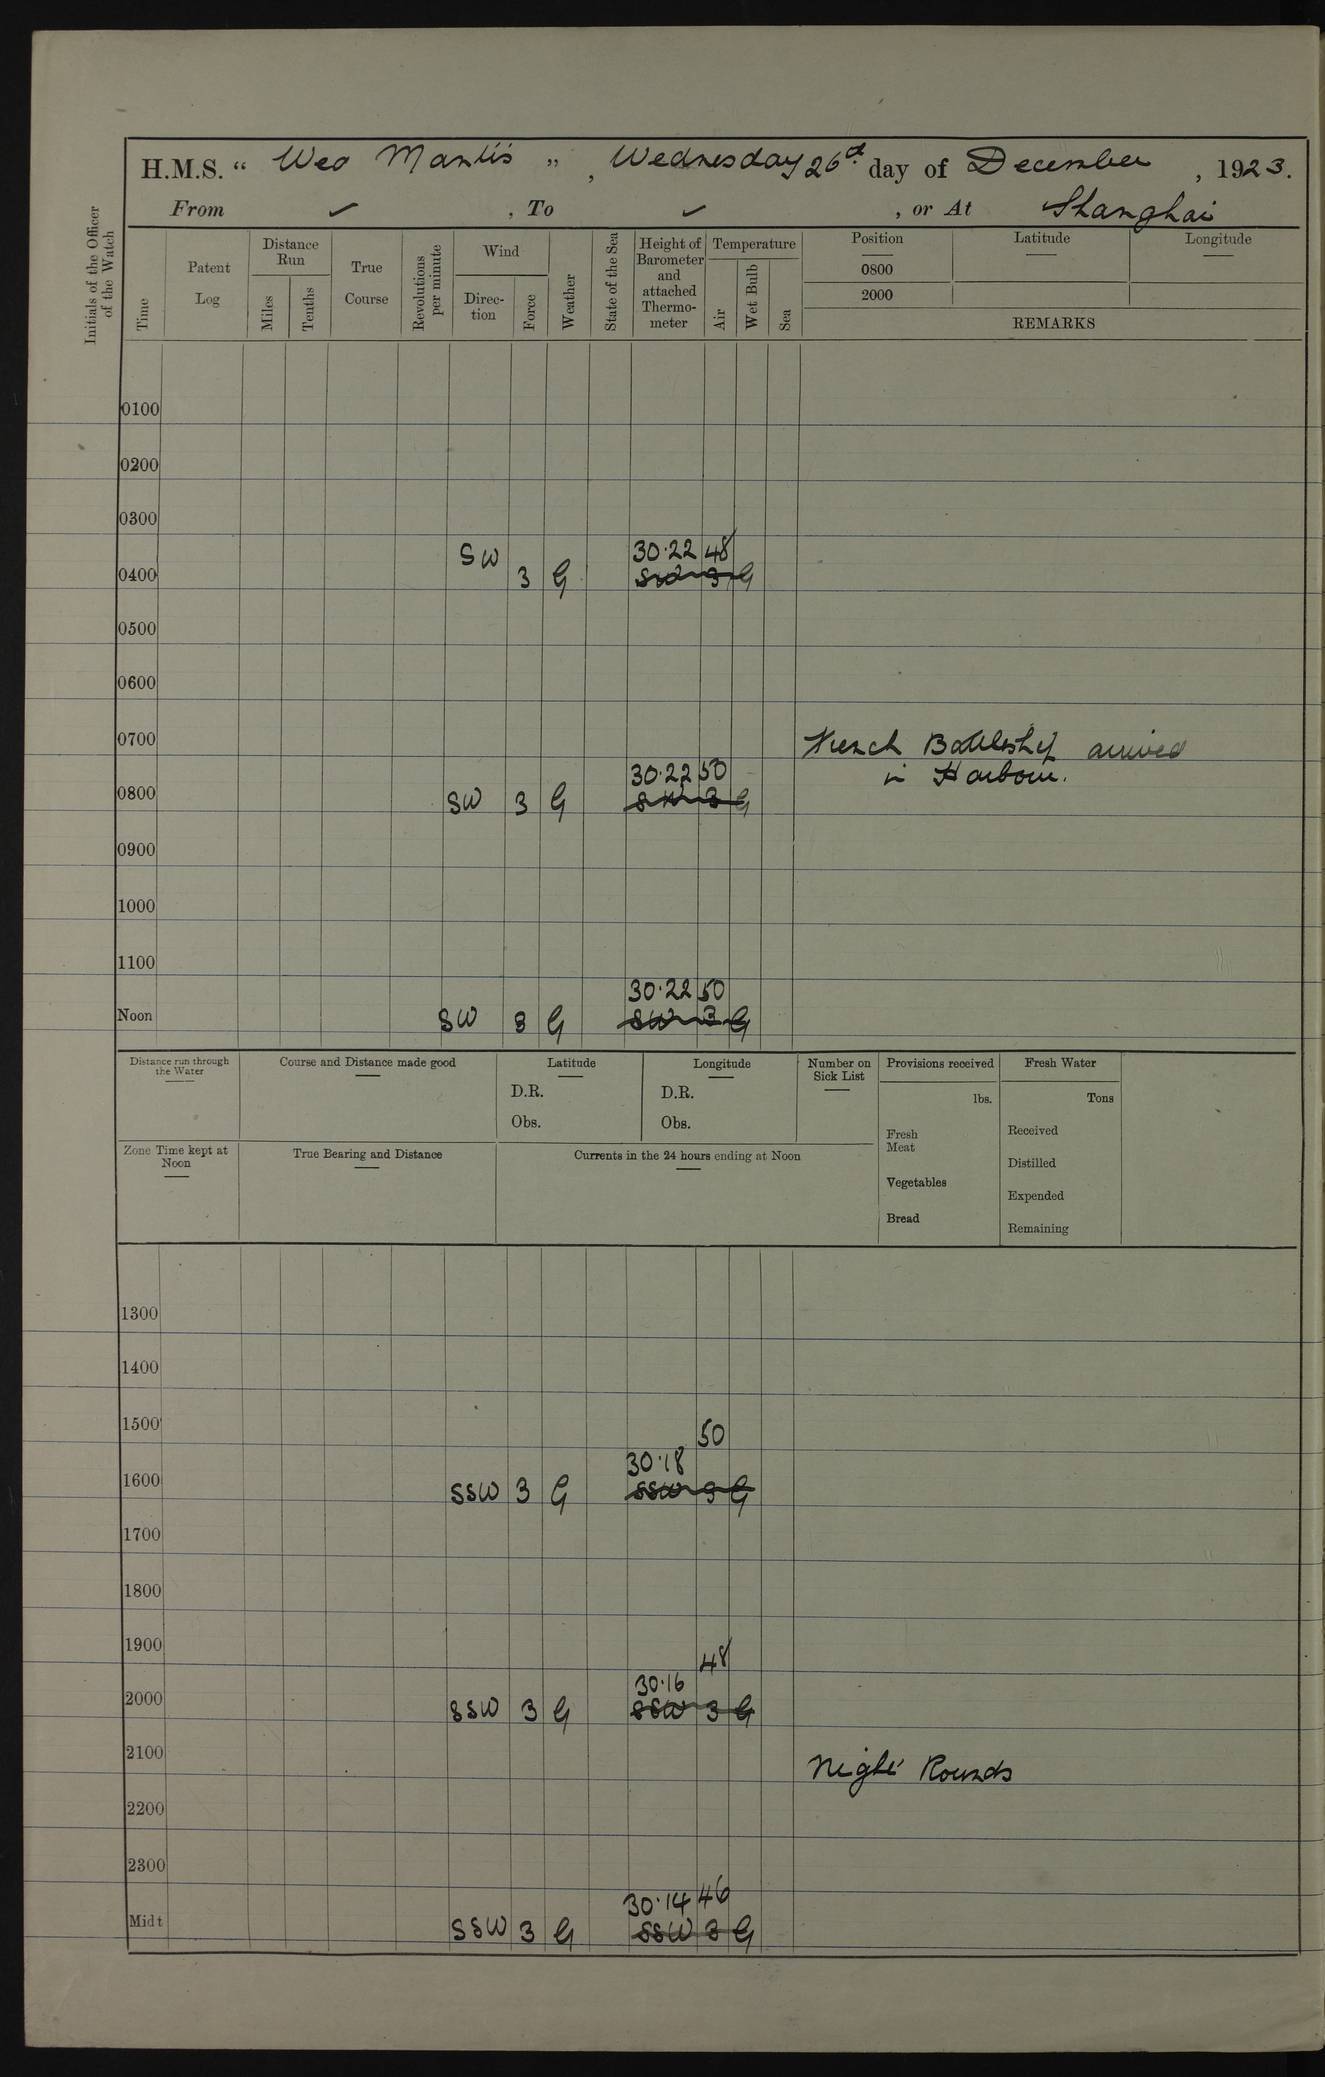 H.M.S. “ Weo Mantis ” , Wednesday 26d day of December , 1923.
From ✓ , To ✓ , or At Shanghai
Initials of the Officer of the Watch
Time
Patent Log
Distance Run
Miles
Tenths
True Course
Revolutions per minute
Wind
Direc-tion
Force
Weather
State of the Sea
Height of Barometer and attached Thermo-meter
Temperature
Air
Wet Bulb
Sea
Position Latitude Longitude
0800
2000
REMARKS
0100
0200
0300
SW 30·22 48
0400 3 G SW 3 G
0500
0600
0700 French Battleship arrived
30·22 50 in Harbour.
0800 SW 3 G SW 3 G
0900
1000
1100
30·22 50
Noon SW 3 G SW 3 G
Distance run through the Water
Course and Distance made good
Latitude
D.R.
Obs.
Longitude
D.R.
Obs.
Number on Sick List
Provisions received
lbs.
Fresh Meat
Vegetables
Bread
Fresh Water
Tons
Received
Distilled
Expended
Remaining
Zone Time kept at Noon
True Bearing and Distance
Currents in the 24 hours ending at Noon
1300
1400
1500 50
30·18
1600 SSW 3 G SSW 3 G
1700
1800
1900 48
30·16
2000 SSW 3 G SSW 3 G
2100 Night Rounds
2200
2300
30·14 46
Midt SSW 3 G SSW 3 G